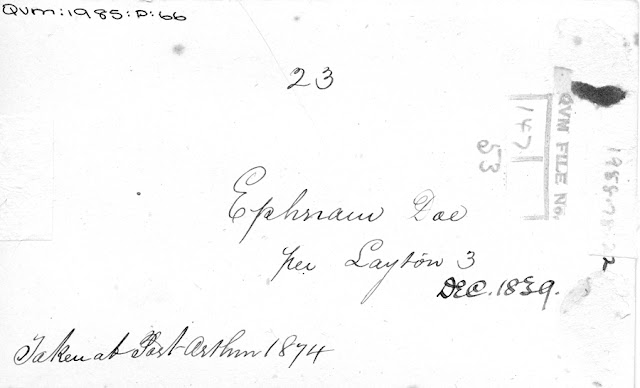 QVM:1985:P:66
23
QVM FILE No.
147
53
Ephraim Doe
per Layton 3
DEC. 1839.
Taken at Port Arthur 1874